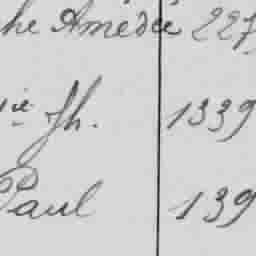 he Amédée 227
ie Jh. 1339
Paul 139